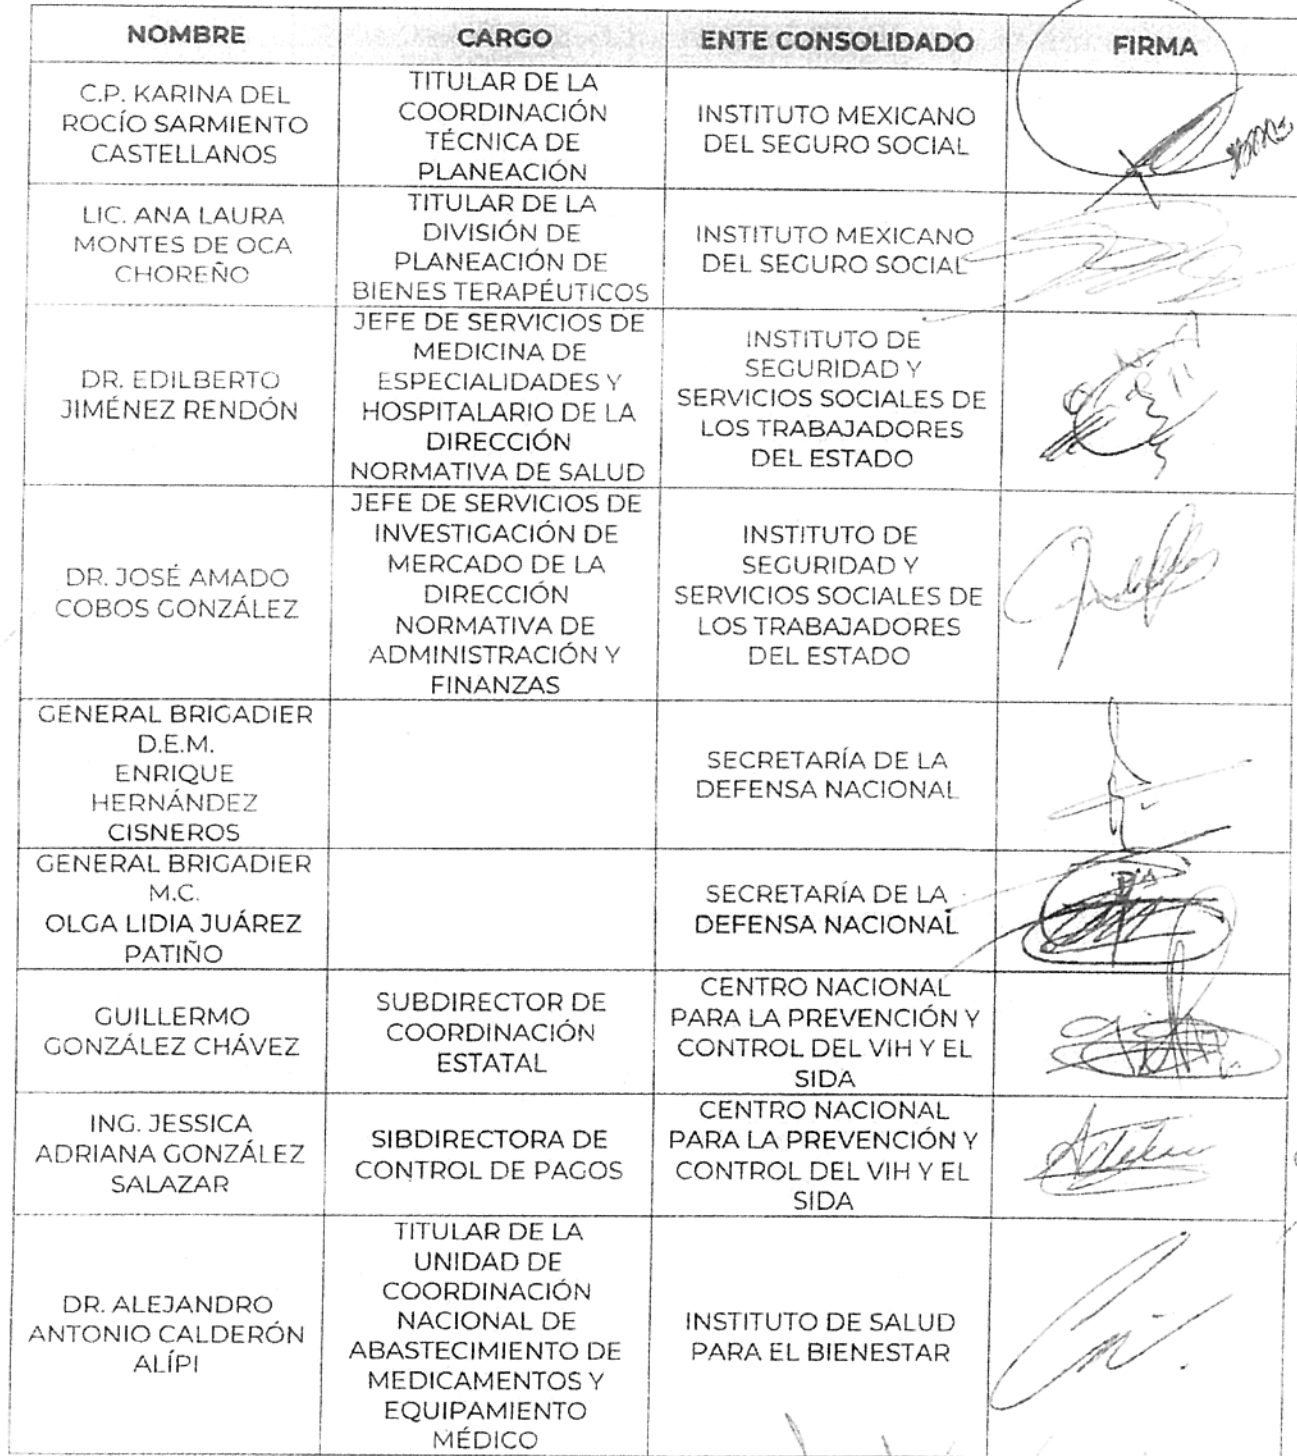 NOMBRE CARGO ENTE CONSOLIDADO FIRMA
C.P. KARINA DEL
ROCÍO SARMIENTO
CASTELLANOS
TITULAR DE LA
COORDINACIÓN
TÉCNICA DE
PLANEACIÓN
INSTITUTO MEXICANO
DEL SEGURO SOCIAL
LIC. ANA LAURA
MONTES DE OCA
CHOREÑO
TITULAR DE LA
DIVISIÓN DE
PLANEACIÓN DE
BIENES TERAPÉUTICOS
INSTITUTO MEXICANO
DEL SEGURO SOCIAL
DR. EDILBERTO
JIMÉNEZ RENDÓN
JEFE DE SERVICIOS DE
MEDICINA DE
ESPECIALIDADES Y
HOSPITALARIO DE LA
DIRECCIÓN
NORMATIVA DE SALUD
INSTITUTO DE
SEGURIDAD Y
SERVICIOS SOCIALES DE
LOS TRABAJADORES
DEL ESTADO
DR. JOSÉ AMADO
COBOS GONZÁLEZ
JEFE DE SERVICIOS DE
INVESTIGACIÓN DE
MERCADO DE LA
DIRECCIÓN
NORMATIVA DE
ADMINISTRACIÓN Y
FINANZAS
INSTITUTO DE
SEGURIDAD Y
SERVICIOS SOCIALES DE
LOS TRABAJADORES
DEL ESTADO
GENERAL BRIGADIER
D.E.M.
ENRIQUE
HERNÁNDEZ
CISNEROS
SECRETARÍA DE LA
DEFENSA NACIONAL
GENERAL BRIGADIER
M.C.
OLGA LIDIA JUÁREZ
PATIÑO
SECRETARÍA DE LA
DEFENSA NACIONAL
GUILLERMO
GONZÁLEZ CHÁVEZ
SUBDIRECTOR DE
COORDINACIÓN
ESTATAL
CENTRO NACIONAL
PARA LA PREVENCIÓN Y
CONTROL DEL VIH Y EL
SIDA
ING. JESSICA
ADRIANA GONZÁLEZ
SALAZAR
SIBDIRECTORA DE
CONTROL DE PAGOS
CENTRO NACIONAL
PARA LA PREVENCIÓN Y
CONTROL DEL VIH Y EL
SIDA
DR. ALEJANDRO
ANTONIO CALDERÓN
ALÍPI
TITULAR DE LA
UNIDAD DE
COORDINACIÓN
NACIONAL DE
ABASTECIMIENTO DE
MEDICAMENTOS Y
EQUIPAMIENTO
MÉDICO
INSTITUTO DE SALUD
PARA EL BIENESTAR